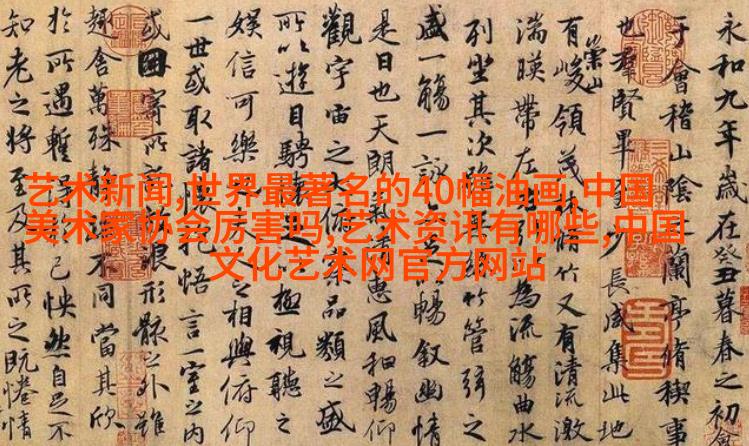 艺术新闻,世界最著名的40幅油画,中国
美术家协会厉害吗,艺术资讯有哪些,中国
文化艺术网官方网站
永和九年歲在癸丑暮春之初會
于會稽山陰蘭亭脩稧事
也羣賢畢至少長咸集此地
有崇山峻領茂林脩竹又有清流激
湍暎帶左右引為流觴曲水
列坐其次絲竹管弦之
盛一觴一詠足以暢敘幽情
是日也天朗氣清惠風和暢仰
觀宇宙之察品類之盛
所以遊目騁足以極視聽之
娛信可樂夫人之相與俯仰
一世或取諸懷抱悟言一室之內
或因寄所浪形骸之外雖
趣舍萬殊靜不同當其欣
於所遇暫得己怏然自足不
知老之將至及其所之既惓情